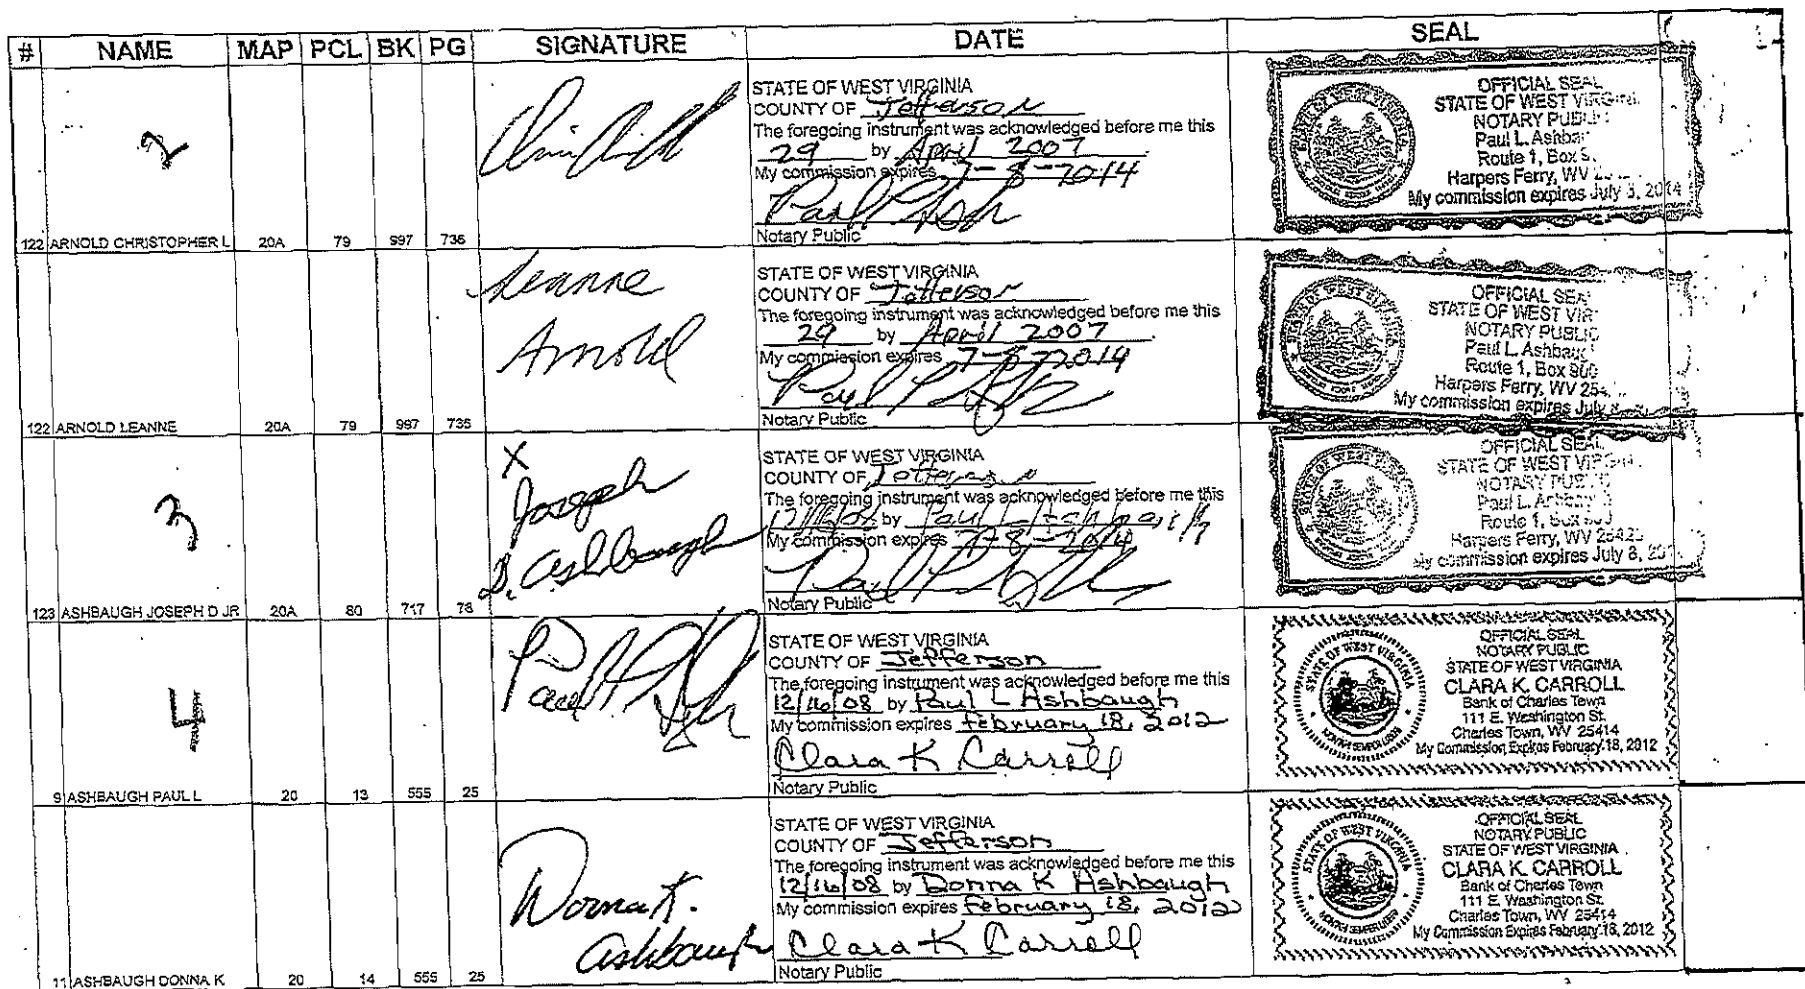 # NAME MAP PCL BK PG SIGNATURE DATE SEAL
2
122 ARNOLD CHRISTOPHER L 20A 79 997 736
STATE OF WEST VIRGINIA
COUNTY OF Jefferson
The foregoing instrument was acknowledged before me this
29 by April 2007
My commission expires 7-8-2014
Notary Public
OFFICIAL SEAL
STATE OF WEST VIRGINI
NOTARY PUBLI
Paul L. Ashba
Route 1, Box
Harpers Ferry, WV
My commission expires July 2014
122 ARNOLD LEANNE 20A 79 997 735
Leanne
Arnold
STATE OF WEST VIRGINIA
COUNTY OF Jefferson
The foregoing instrument was acknowledged before me this
29 by April 2007
My commission expires 7-8-2014
Notary Public
OFFICIAL SEA
STATE OF WEST VIR
NOTARY PUBLIC
Paul L. Ashbaug
Route 1, Box
Harpers Ferry, WV 254
My commission expires July
3
123 ASHBAUGH JOSEPH D JR 20A 80 717 78
X
Joseph
D. Ashbaugh
STATE OF WEST VIRGINIA
COUNTY OF Jefferson
The foregoing instrument was acknowledged before me this
by Paul L Ashbaugh
My commission expires 7-8-2014
Notary Public
OFFICIAL SEAL
STATE OF WEST
NOTARY
Paul L.
Route 1,
Harpers Ferry, WV 25425
My commission expires July 8, 201
4
9 ASHBAUGH PAUL L 20 13 555 25
STATE OF WEST VIRGINIA
COUNTY OF Jefferson
The foregoing instrument was acknowledged before me this
12/16/08 by Paul L Ashbaugh
My commission expires February 18, 2012
Clara K Carroll
Notary Public
STATE OF WEST VIRGINIA
MONTANI SEMPER LIBERI
OFFICIAL SEAL
NOTARY PUBLIC
STATE OF WEST VIRGINIA
CLARA K. CARROLL
Bank of Charles Town
111 E. Washington St.
Charles Town, WV 25414
My Commission Expires February 18, 2012
11 ASHBAUGH DONNA K 20 14 555 25
Donna K.
Ashbaugh
STATE OF WEST VIRGINIA
COUNTY OF Jefferson
The foregoing instrument was acknowledged before me this
12/16/08 by Donna K Ashbaugh
My commission expires February 18, 2012
Clara K Carroll
Notary Public
STATE OF WEST VIRGINIA
MONTANI SEMPER LIBERI
OFFICIAL SEAL
NOTARY PUBLIC
STATE OF WEST VIRGINIA
CLARA K. CARROLL
Bank of Charles Town
111 E. Washington St.
Charles Town, WV 25414
My Commission Expires February 18, 2012